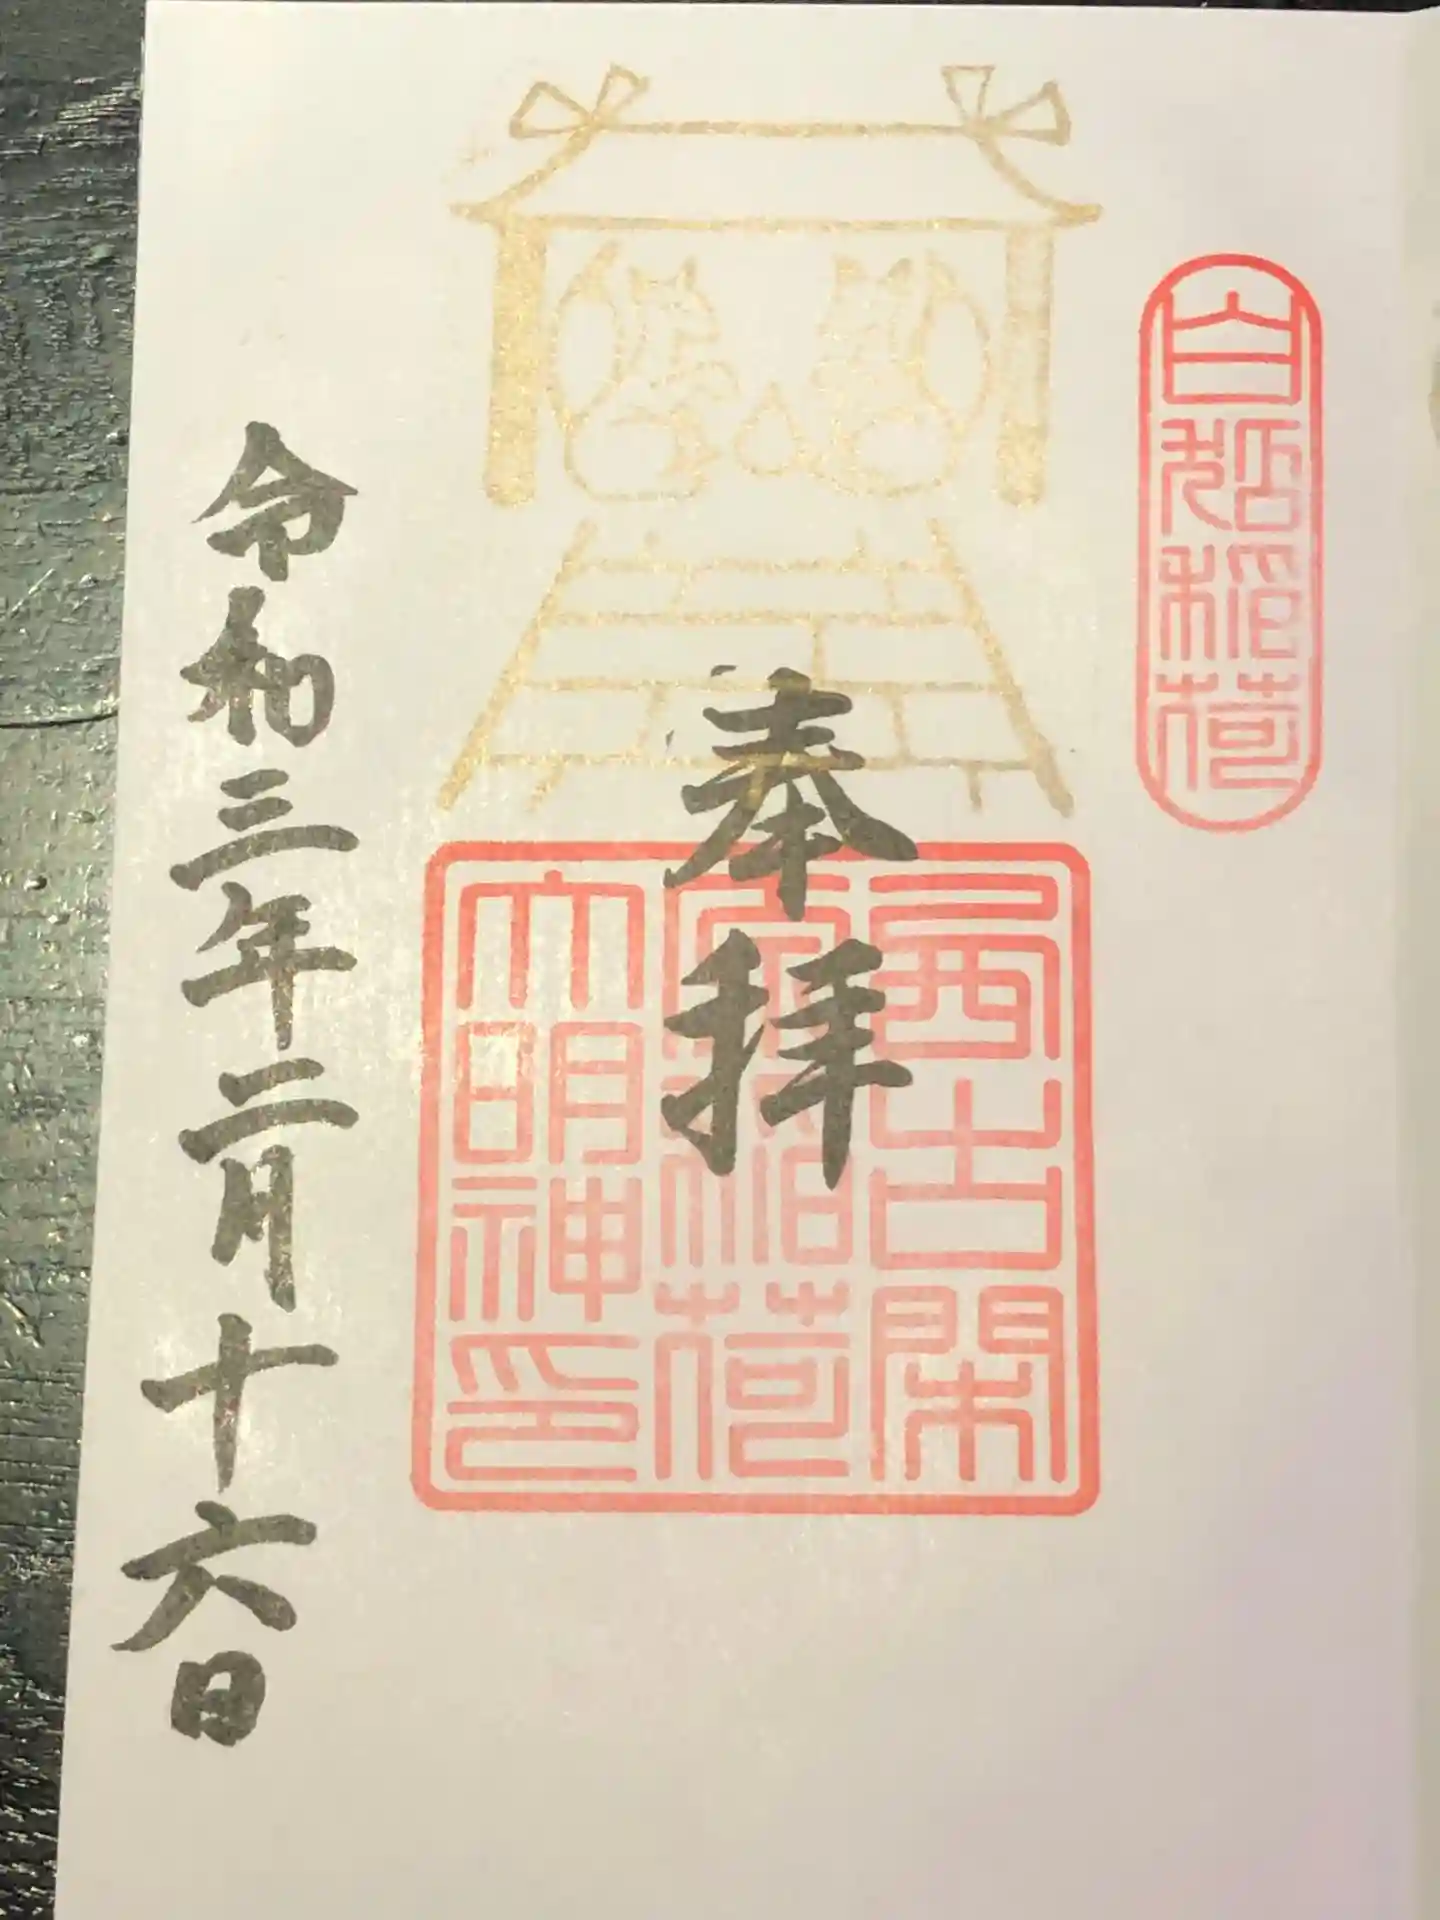 白狐稲荷
奉拝
西古開
稲荷
大明神印
令和三年二月十六日